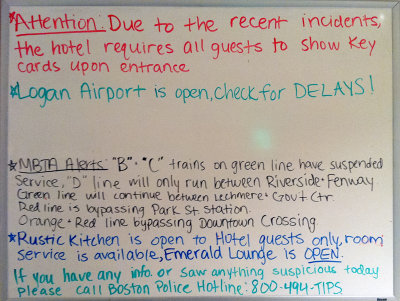 *Attention: Due to the recent incidents,
the hotel requires all guests to show Key
cards upon entrance
*Logan Airport is open, check for DELAYS!
*MBTA Alerts: "B" · "C" trains on green line have suspended
Service, "D" line will only run between Riverside + Fenway.
Green line will continue between Lechmere + Gov't Ctr.
Red line is bypassing Park St station.
Orange + Red line bypassing Downtown Crossing.
*Rustic Kitchen is open to Hotel guests only, room
service is available, Emerald Lounge is OPEN.
If you have any info. or saw anything suspicious today
Please call Boston Police Hotline: 800-494-TIPS